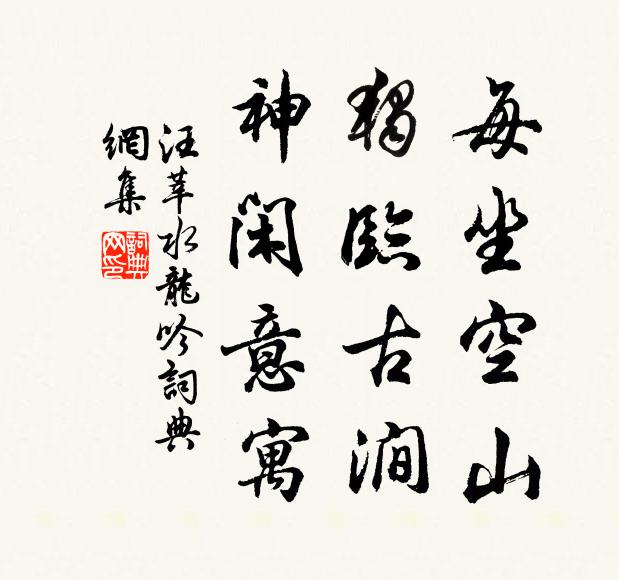 每坐空山
獨臨古澗
神閑意寓
汪莘水龍吟詞典
網集
詞典
网印